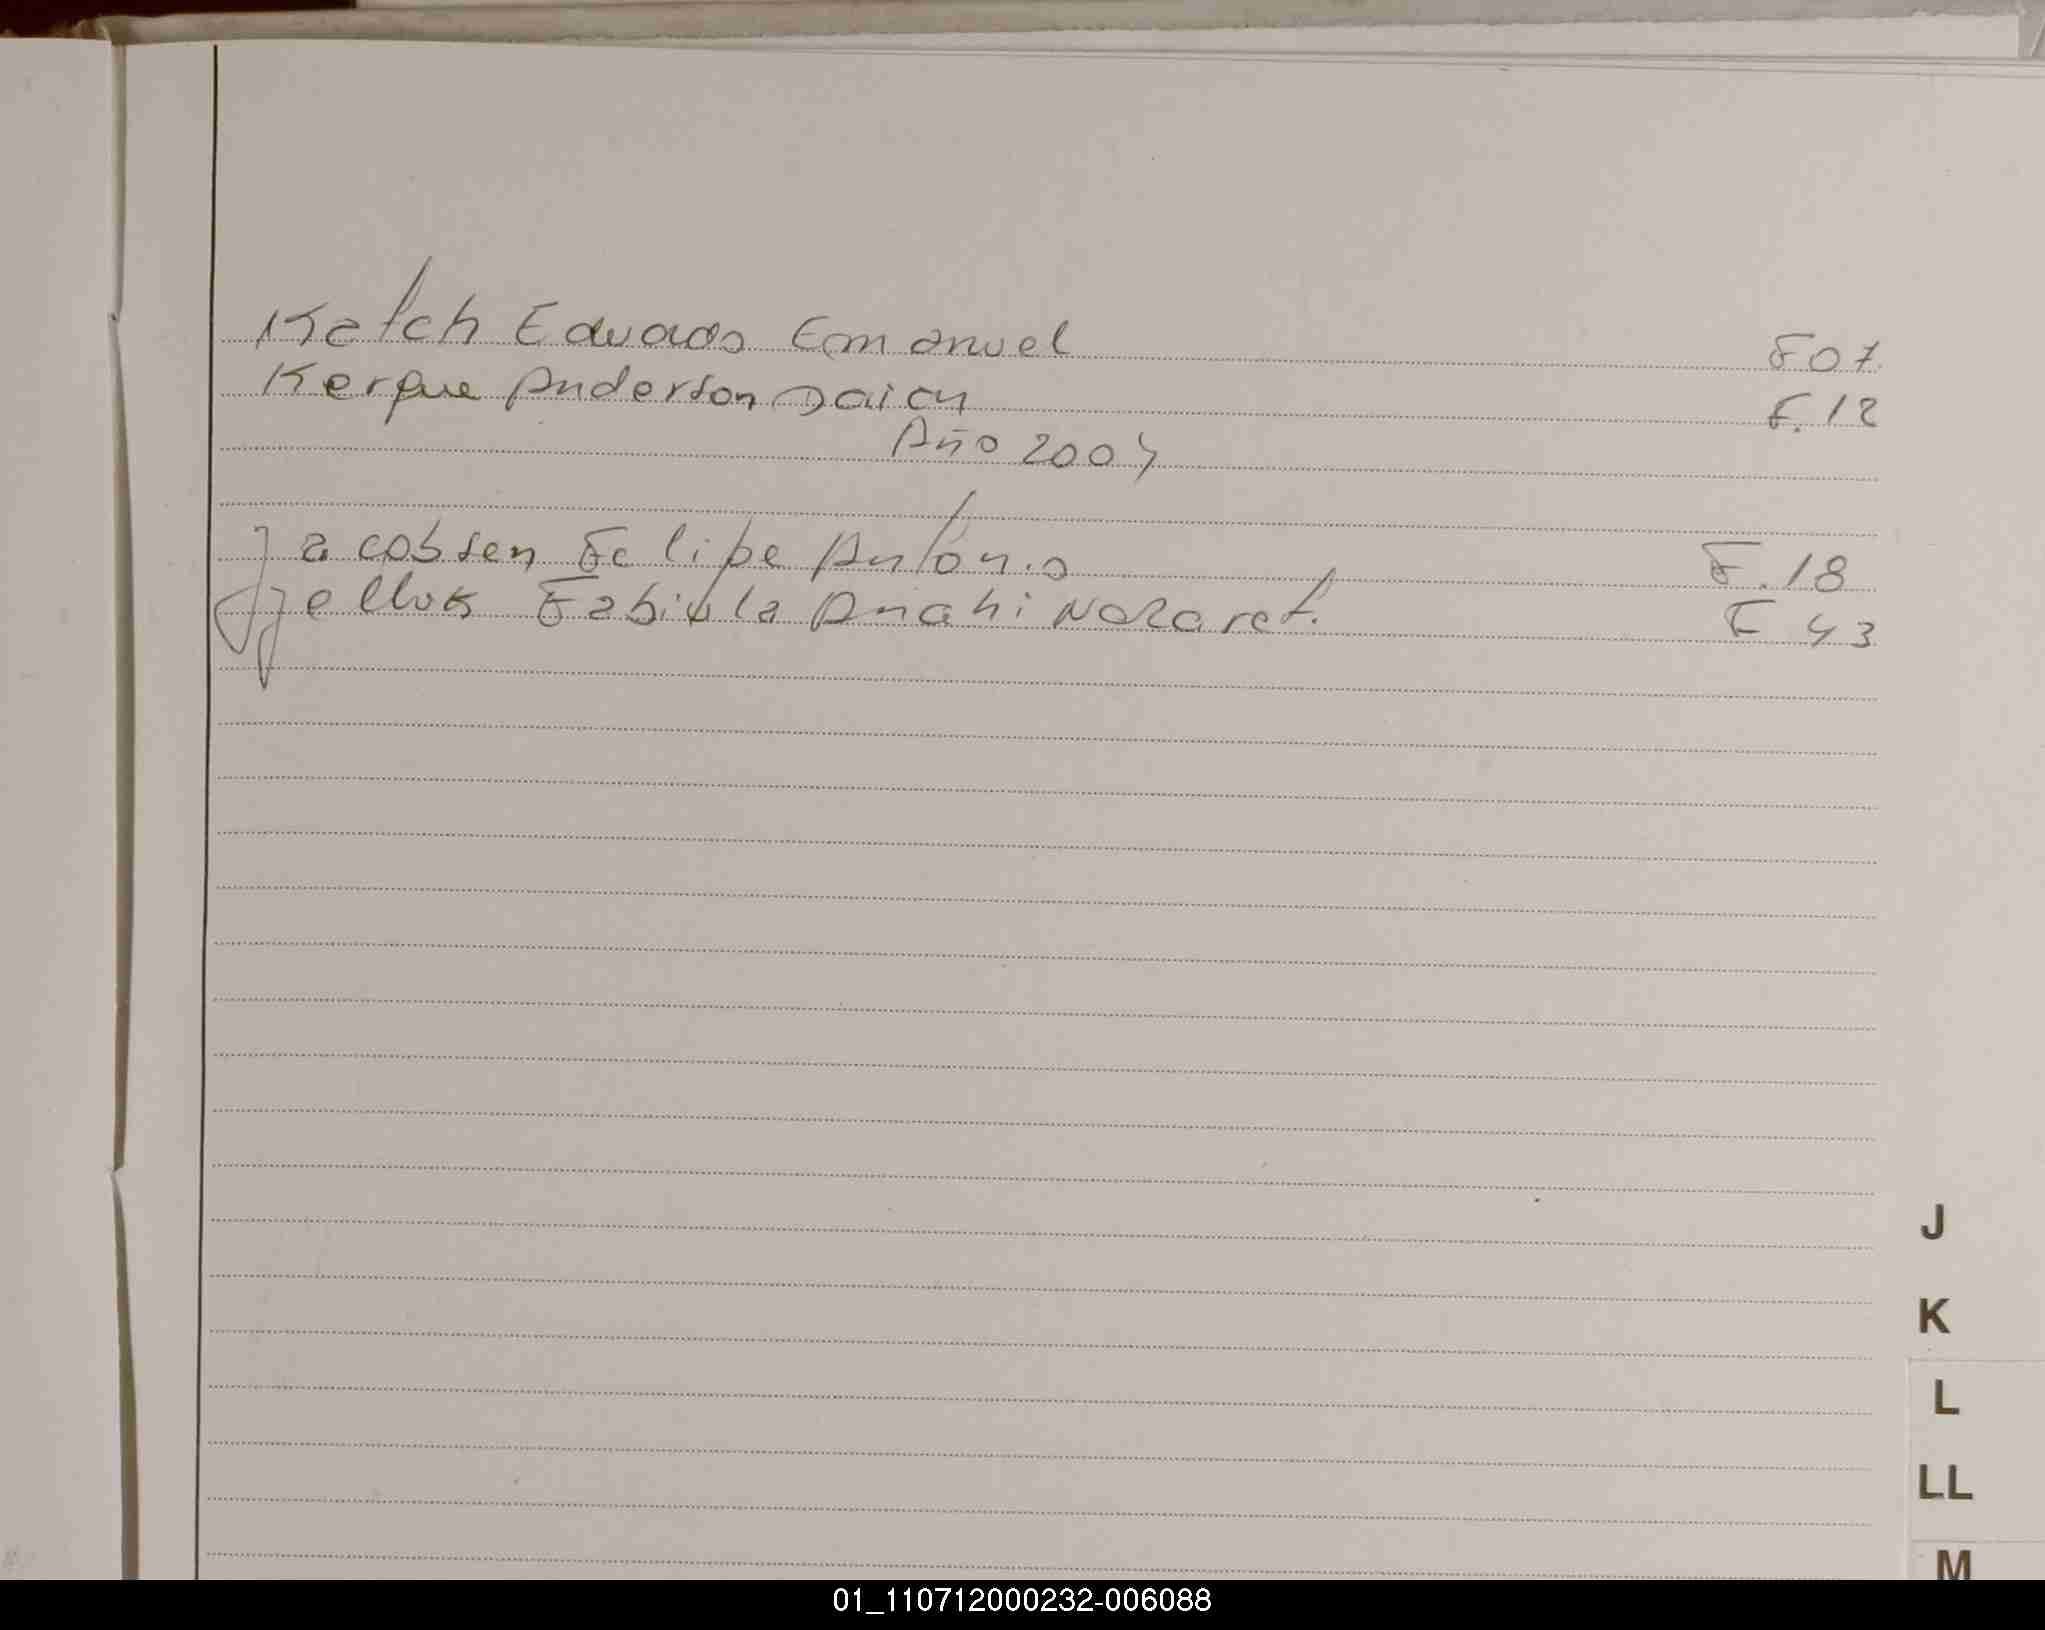 Ketch Eduardo Emanuel F 07.
Kerque Anderson Daian F. 12
Año 2004
Jacobsen Felipe Antonio F. 18
Jelluk Fabiola Anahi Nazaret. F 43
J
K
L
LL
M
01_110712000232-006088